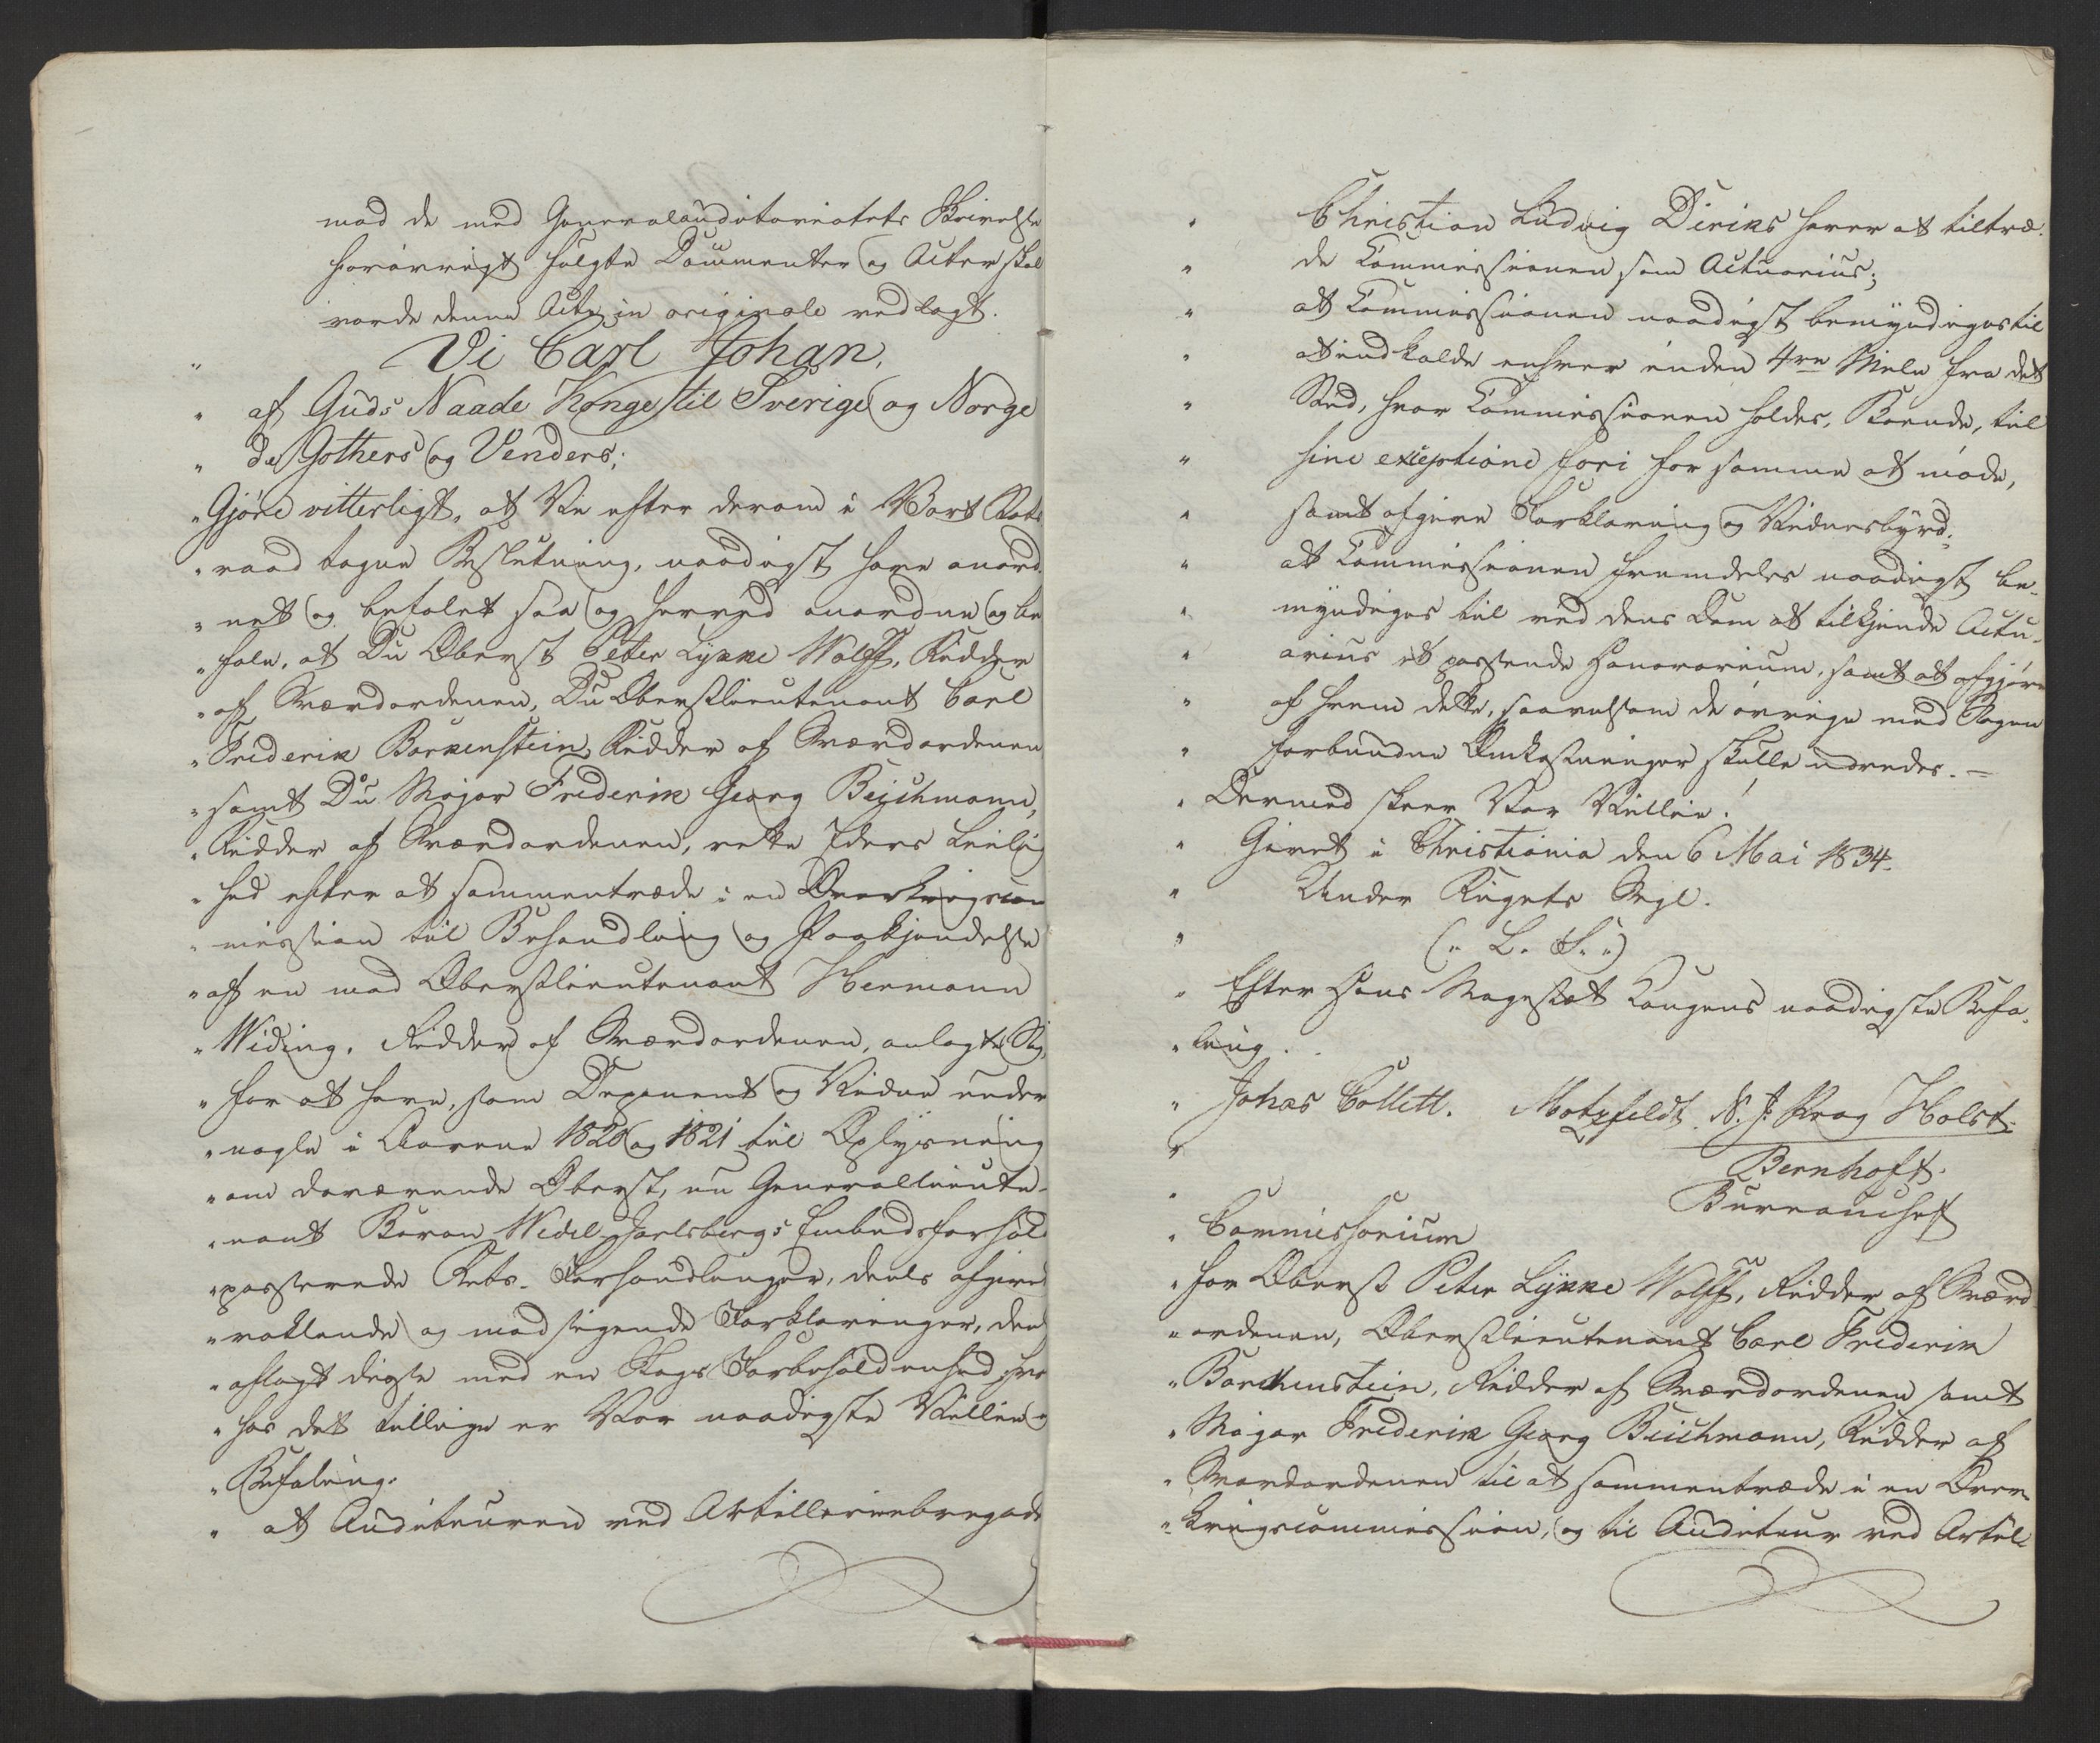 mod de med Generalauditoriatets Skrivelse
forøvrigt fulgte Documenter og Acter skal
vorde denne Act in originale vedlagt.
" Vi Carl Johan,
" af Guds Naade Konge til Sverige og Norge
" de Gothers og Venders;
" Gjøre vitterligt, at Vi efter derom i Vort Stats
" raad tagne Beslutning, naadigst have anord
" net og befalet saa og herved anordne og be
" fale, at Du Oberst Peter Lykke Wolff, Ridder
" af Sværdordenen, Du Oberstlieutenant Carl
" Frederik Borkenstein, Ridder af Sværdordenen
" samt Du Major Frederik Georg Beichmann,
" Ridder af Sværdordenen, rette Eders Leilig
" hed efter at sammentræde i en Overkrigscom
" mission til Behandling og Paakjendelse
" af en mod Oberstlieutenant Hermann
" Widing, Ridder af Sværdordenen, anlagt Sag,
" for at have, som Deponent og Vidne under
" nogle i Aarene 1820 og 1821 til Oplysning
" om daværende Oberst, nu Generallieute-
" nant Baron Wedel-Jarlsbergs Embedsforhold
" passerede Rets-Forhandlinger, deels afgivet
" vaklende og modsigende Forklaringer, deels
" aflagt disse med en Slags Forbeholdenhed; hvor
" hos det tillige er Vor naadigste Villie og
" Befaling:
" at Auditeuren ved Artilleriebrigade
" Christian Ludvig Diriks haver at tiltræ-
" de Commissionen som Actuarius;
" at Commissionen naadigst bemyndiges til
" at indkalde enhver inden 4re Mile fra det
" Sted, hvor Commissionen holdes, Boende, til
" sine exceptione fori for samme at møde,
" samt afgive Forklaring og Vidnesbyrd;
" at Commissionen fremdeles naadigst be-
" myndiges til ved dens Dom at tilkjende Actu-
" arius et passende Honorarium, samt at afgjøre
" af hvem dette, saavelsom de øvrige med Sagen
" forbundne Omkostninger skulle udredes. —
" Dermed skeer Vor Villie!
" Givet i Christiania den 6 Mai 1834.
" Under Rigets Segl.
" (" L. S. ")
" Efter Hans Majestæt Kongens naadigste Befa-
" ling.
" Johas Collett. Motzfeldt. N. J. Krog Holst.
" Bernhoft.
" Bureauchef
" Commissorium
" for Oberst Peter Lykke Wolff, Ridder af Sværd
" ordenen, Oberstlieutenant Carl Frederik
" Borchenstein, Ridder af Sværdordenen samt
" Major Frederik Georg Beichmann, Ridder af
" Sværdordenen til at sammentræde i en Over-
" krigscommission, og til Auditeur ved Artil-